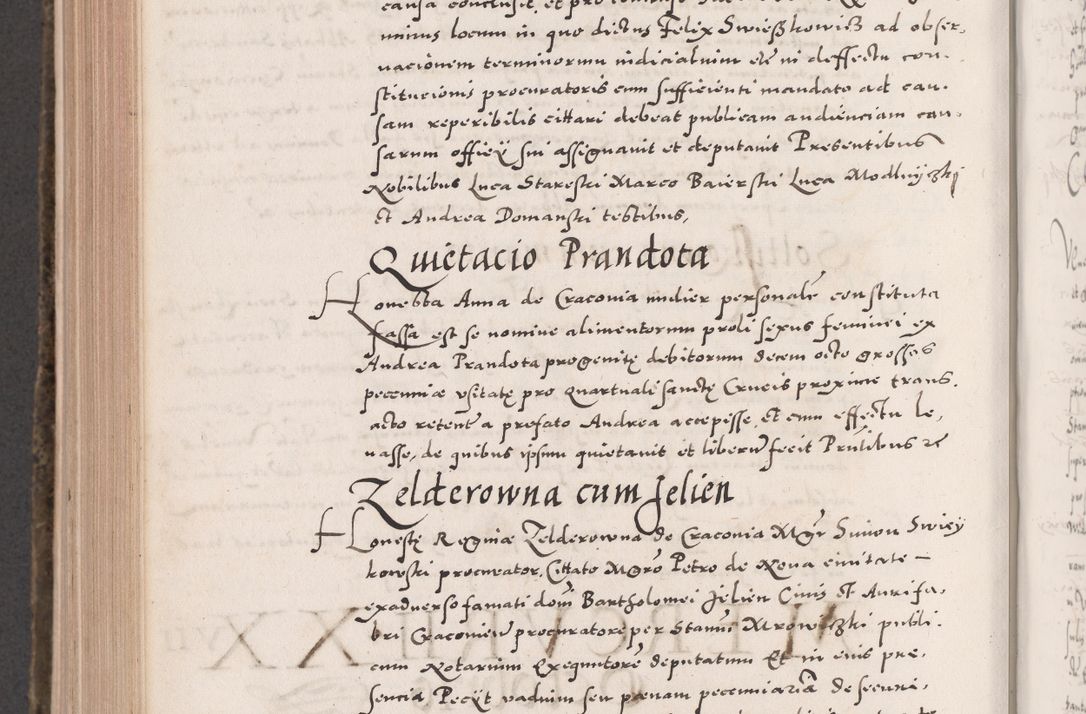 causa conclusit, et pro
minus locum in quo dictus Felix Swieszkowicz ad obser,
uacionem terminorum iudicialium etc in deffectu con,
stitucionis procuratoris cum sufficienti mandato ad cau,
sam reperibilis cittari debeat publicam audienciam cau,
sarum officÿ sui assignauit et deputauit Presentibus
Nobilibus Luca Stareski Marco Baierski Luca Modlnyczki
et Andrea Domanski testibus,
Quietacio Prandota
Honesta Anna de Cracouia mulier personale constituta
fassa est se nomine alimentorum proli sexus feminei ex
Andrea Prandota progenitę debitorum decem octo grosses
pecuniæ vsitatę pro quartuale sanctę Crucis proxime trans,
acto retent a prefato Andrea accepisse, et cum effectu le,
uasse, de quibus ipsum quietauit et liberū fecit Pntibus re
Zelderowna cum Jelien
Honestę Reginæ Zelderowna de Cracouia Mgr Simon Swiey
kowski procurator, Cittato Mgro Petro de Noua ciuitate
exaduerso famati domī Bartholomei Jelien Ciuis et Aurifa,
bri Cracouien procuratore per Stanū Mrowiczki publi,
cum Notarium Exequutore deputatum Et in eius pre,
sencia Pecÿt vadium seu pænam pecuniariā de securi,